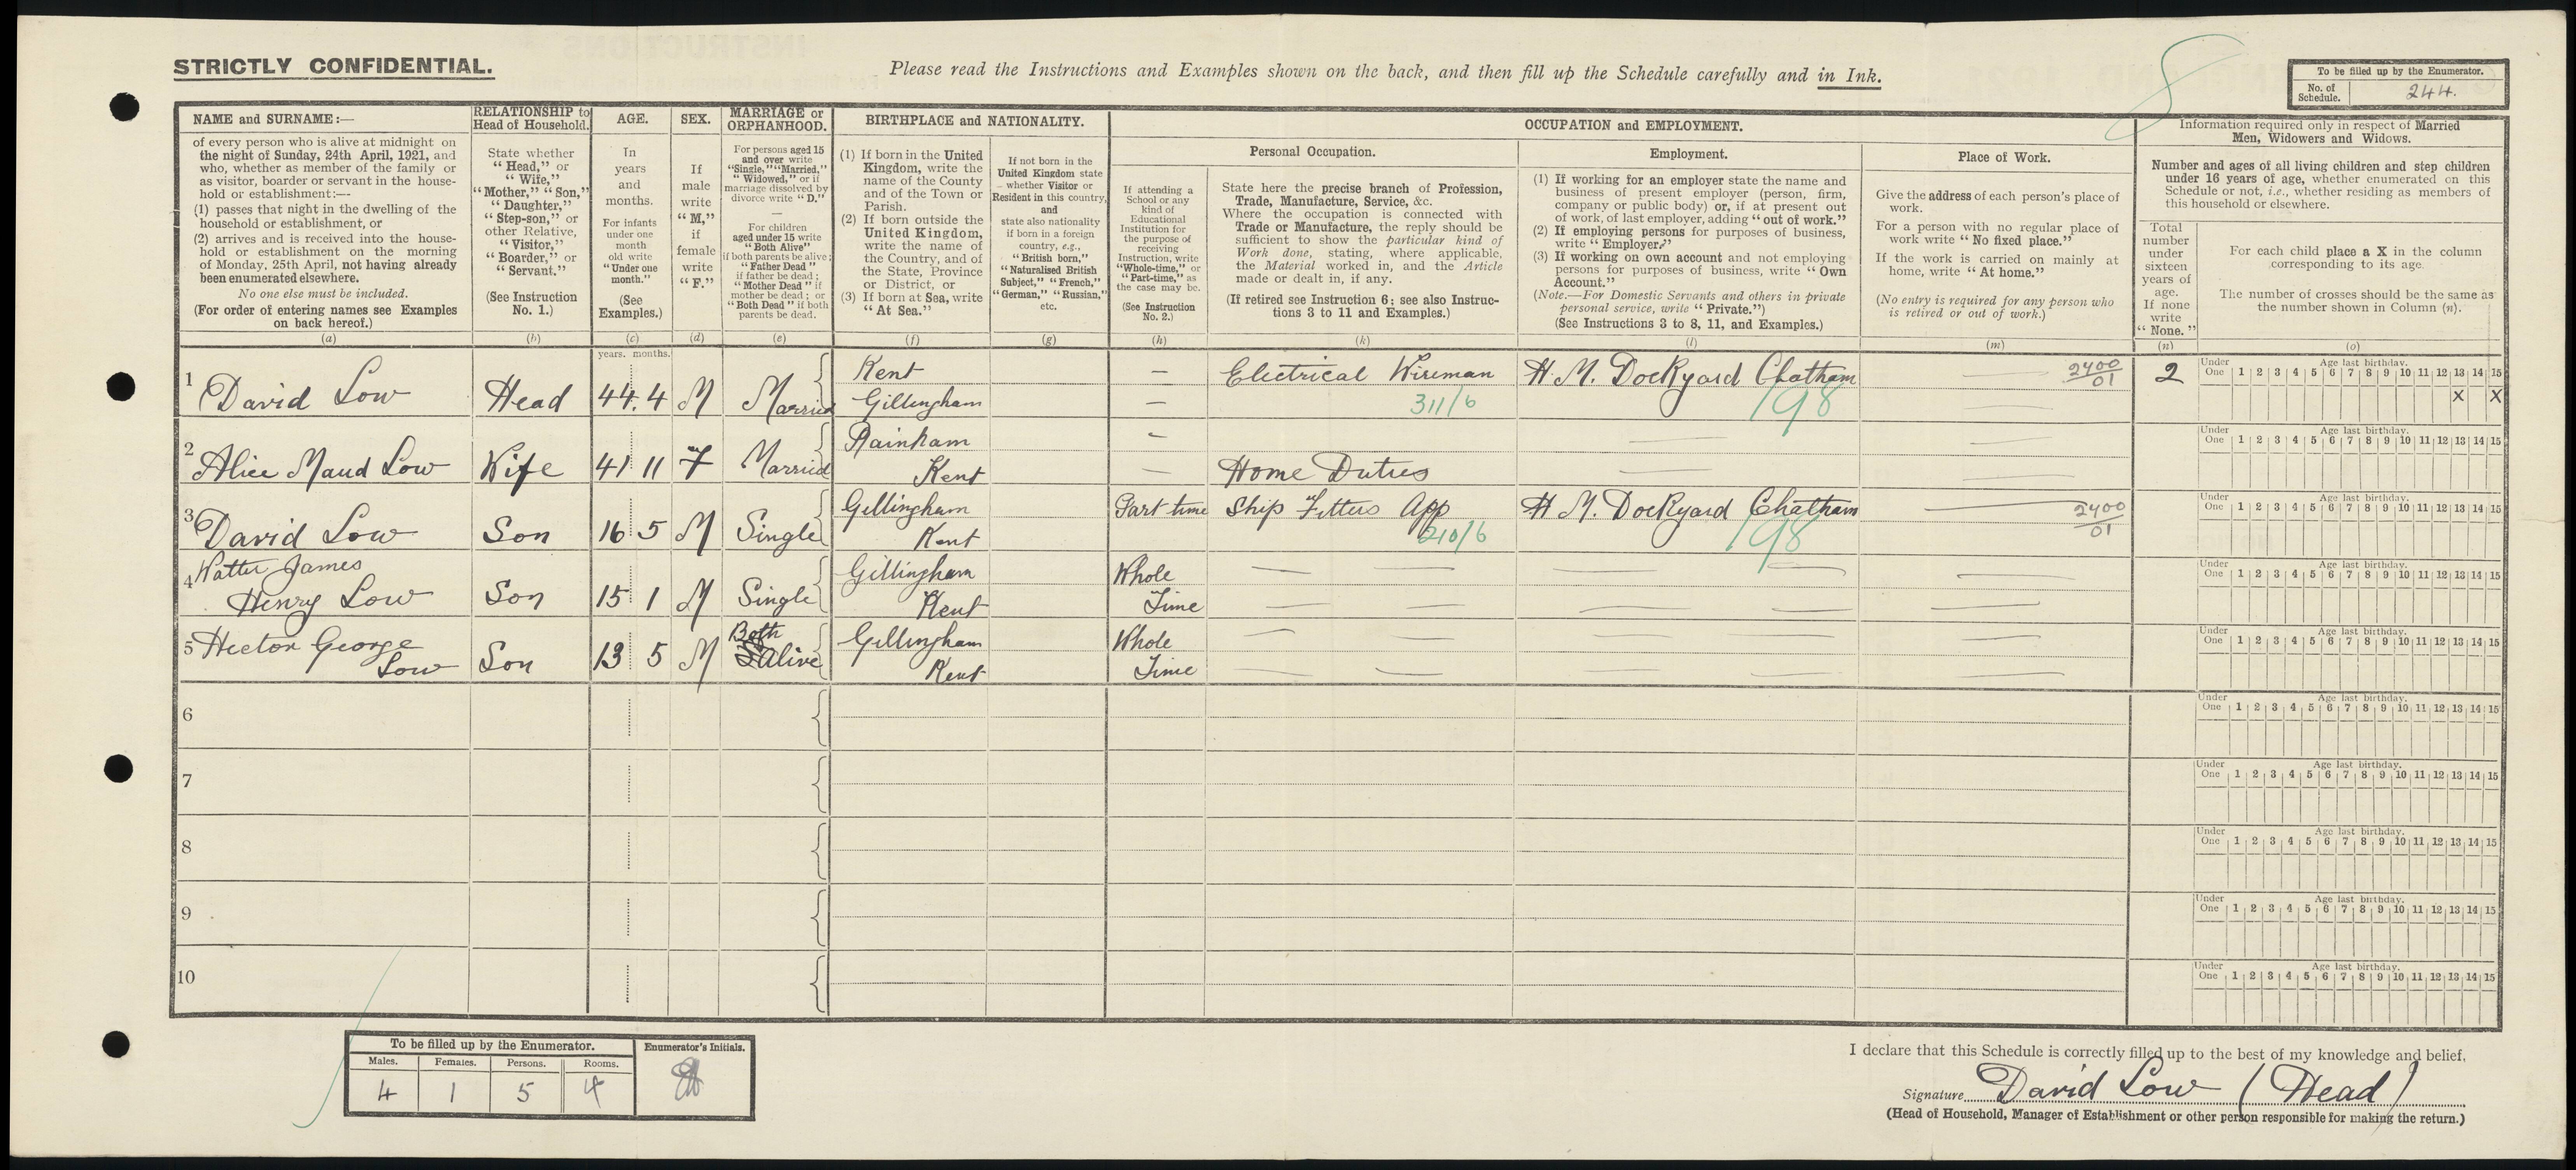 STRICTLY CONFIDENTIAL.
Please read the Instructions and Examples shown on the back, and then fill up the Schedule carefully and in Ink.
To be filled up by the Enumerator.
No. of Schedule. 244.
NAME and SURNAME:—
of every person who is alive at midnight on
the night of Sunday, 24th April, 1921, and
who, whether as member of the family or
as visitor, boarder or servant in the house-
hold or establishment:—
(1) passes that night in the dwelling of the
household or establishment, or
(2) arrives and is received into the house-
hold or establishment on the morning
of Monday, 25th April, not having already
been enumerated elsewhere.
No one else must be included.
(For order of entering names see Examples
on back hereof.)
(a)
RELATIONSHIP to
Head of Household.
State whether
"Head," or
"Wife,"
"Mother," "Son,"
"Daughter,"
"Step-son," or
other Relative,
"Visitor,"
"Boarder," or
"Servant."
(See Instruction
No. 1.)
(b)
AGE.
In
years
and
months.
For infants
under one
month
old write
"Under one
month."
(See
Examples.)
(c)
SEX.
If
male
write
"M,"
if
female
write
"F."
(d)
MARRIAGE or
ORPHANHOOD.
For persons aged 15
and over write
"Single," "Married,"
"Widowed," or if
marriage dissolved by
divorce write "D."
—
For children
aged under 15 write
"Both Alive"
if both parents be alive;
"Father Dead"
if father be dead;
"Mother Dead" if
mother be dead; or
"Both Dead" if both
parents be dead.
(e)
BIRTHPLACE and NATIONALITY.
(1) If born in the United
Kingdom, write the
name of the County
and of the Town or
Parish.
(2) If born outside the
United Kingdom,
write the name of
the Country, and of
the State, Province
or District, or
(3) If born at Sea, write
"At Sea."
(f)
If not born in the
United Kingdom state
whether Visitor or
Resident in this country,
and
state also nationality
if born in a foreign
country, e.g.,
"British born,"
"Naturalised British
Subject," "French,"
"German," "Russian,"
etc.
(g)
OCCUPATION and EMPLOYMENT.
Personal Occupation.
If attending a
School or any
kind of
Educational
Institution for
the purpose of
receiving
Instruction, write
"Whole-time," or
"Part-time," as
the case may be.
(See Instruction
No. 2.)
(h)
State here the precise branch of Profession,
Trade, Manufacture, Service, &c.
Where the occupation is connected with
Trade or Manufacture, the reply should be
sufficient to show the particular kind of
Work done, stating, where applicable,
the Material worked in, and the Article
made or dealt in, if any.
(If retired see Instruction 6; see also Instruc-
tions 3 to 11 and Examples.)
(k)
Employment.
(1) If working for an employer state the name and
business of present employer (person, firm,
company or public body) or, if at present out
of work, of last employer, adding "out of work."
(2) If employing persons for purposes of business,
write "Employer."
(3) If working on own account and not employing
persons for purposes of business, write "Own
Account."
(Note.—For Domestic Servants and others in private
personal service, write "Private.")
(See Instructions 3 to 8, 11, and Examples.)
(l)
Place of Work.
Give the address of each person's place of
work.
For a person with no regular place of
work write "No fixed place."
If the work is carried on mainly at
home, write "At home."
(No entry is required for any person who
is retired or out of work.)
(m)
Information required only in respect of Married
Men, Widowers and Widows.
Number and ages of all living children and step children
under 16 years of age, whether enumerated on this
Schedule or not, i.e., whether residing as members of
this household or elsewhere.
Total
number
under
sixteen
years of
age.
If none
write
"None."
(n)
For each child place a X in the column
corresponding to its age.
The number of crosses should be the same as
the number shown in Column (n).
(o)
years. months.
Under One Age last birthday. 1 2 3 4 5 6 7 8 9 10 11 12 13 14 15
1 David Low Head 44.4 M Married Kent Gillingham — — Electrical Wireman 311/6 H M. Dockyard Chatham 198 2400/01 2 X X
2 Alice Maud Low Wife 41 11 F Married Rainham Kent — — Home Duties
3 David Low Son 16 5 M Single Gillingham Kent Part time Ship Fitters App 210/6 H M. Dockyard Chatham 198 2400/01
4 Walter James Henry Low Son 15 1 M Single Gillingham Kent Whole Time
5 Hector George Low Son 13 5 M Both Alive Gillingham Kent Whole Time
6
7
8
9
10
To be filled up by the Enumerator.
Males. Females. Persons. Rooms.
4 1 5 4
Enumerator's Initials.
I declare that this Schedule is correctly filled up to the best of my knowledge and belief,
Signature David Low (Head)
(Head of Household, Manager of Establishment or other person responsible for making the return.)